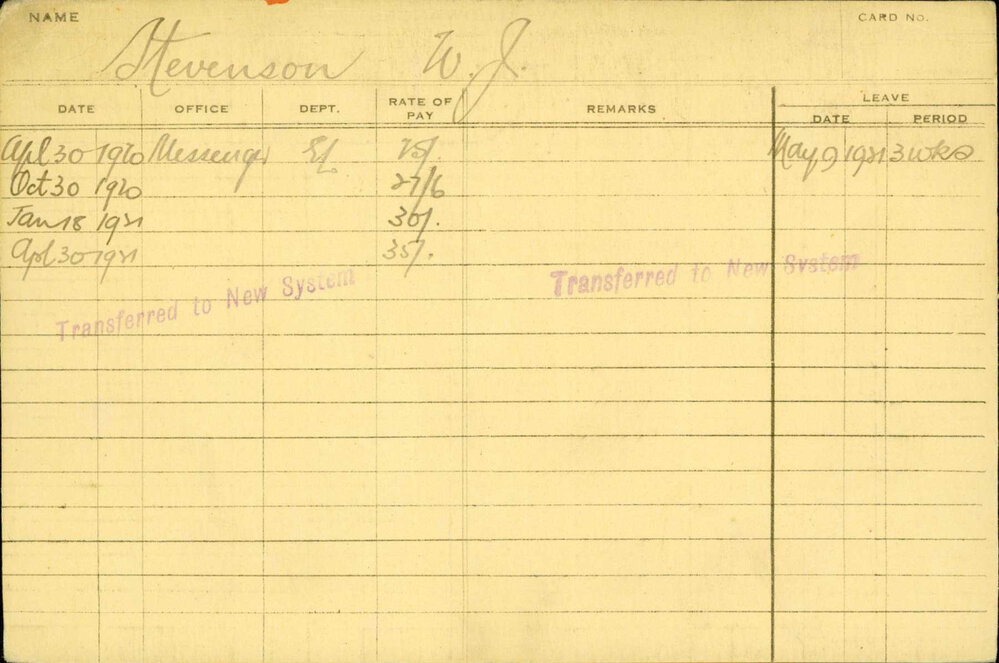 NAME
CARD No.
Stevenson W. J.
DATE OFFICE DEPT. RATE OF PAY REMARKS LEAVE
DATE PERIOD
Apl 30 1920 Messenger 25/. May 9 1921 3 wks
Oct 30 1920 27/6
Jan 18 1921 30/.
Apl 30 1921 35/.
Transferred to New System
Transferred to New System